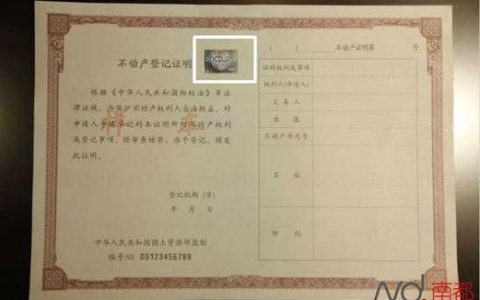 不动产登记证明
根据《中华人民共和国物权法》等法
律法规，为保护不动产权利人合法权益，对
申请人申请登记的本证明所列不动产权利
或登记事项，经审查核实，准予登记，颁发
此证明。
样本
登记机构（章）
年 月 日
中华人民共和国国土资源部监制
编号NO 00123456789
（ ） 不动产证明第 号
证明权利或事项
权利人(申请人)
义务人
坐落
不动产单元号
其他
附记
南都